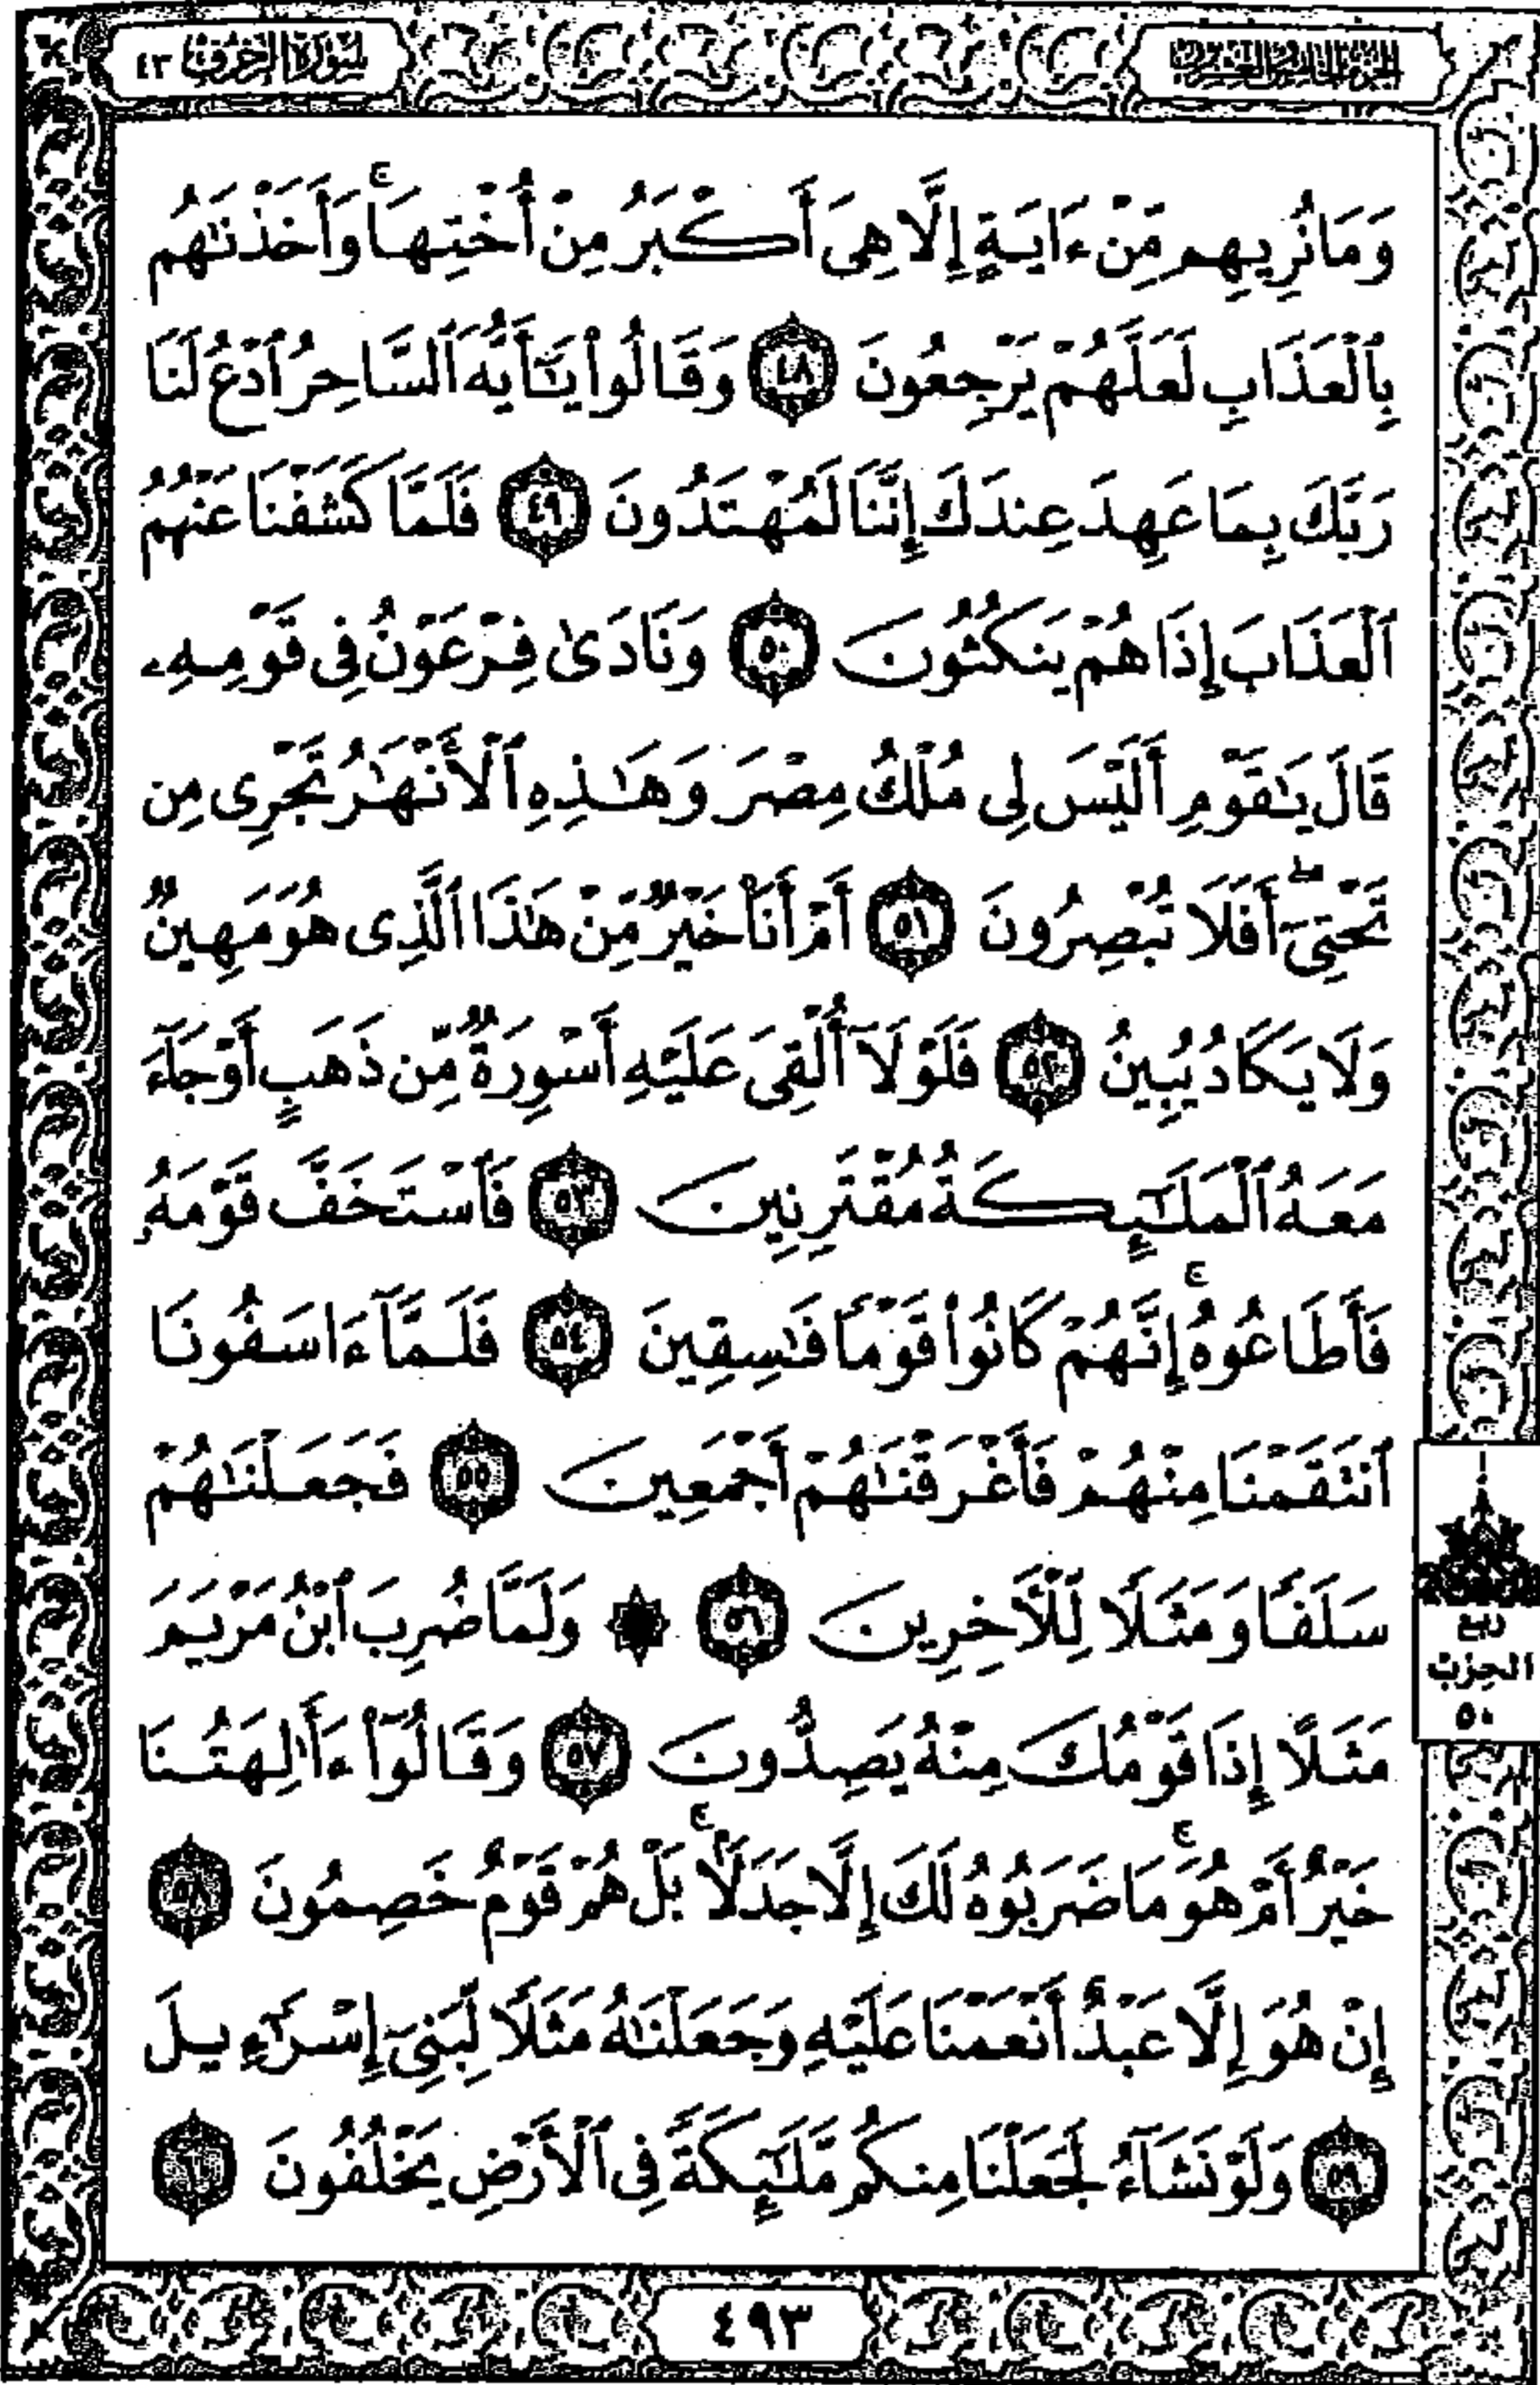 الجزء الخامس والعشرون
سورة الزخرف ٤٣
وَمَا نُرِيهِم مِّنْ ءَايَةٍ إِلَّا هِىَ أَكْبَرُ مِنْ أُخْتِهَا ۚ وَأَخَذْنَٰهُم
بِٱلْعَذَابِ لَعَلَّهُمْ يَرْجِعُونَ ٤٨ وَقَالُوا۟ يَٰٓأَيُّهَ ٱلسَّاحِرُ ٱدْعُ لَنَا
رَبَّكَ بِمَا عَهِدَ عِندَكَ إِنَّنَا لَمُهْتَدُونَ ٤٩ فَلَمَّا كَشَفْنَا عَنْهُمُ
ٱلْعَذَابَ إِذَا هُمْ يَنكُثُونَ ٥٠ وَنَادَىٰ فِرْعَوْنُ فِى قَوْمِهِۦ
قَالَ يَٰقَوْمِ أَلَيْسَ لِى مُلْكُ مِصْرَ وَهَٰذِهِ ٱلْأَنْهَٰرُ تَجْرِى مِن
تَحْتِىٓ ۖ أَفَلَا تُبْصِرُونَ ٥١ أَمْ أَنَا۠ خَيْرٌ مِّنْ هَٰذَا ٱلَّذِى هُوَ مَهِينٌ
وَلَا يَكَادُ يُبِينُ ٥٢ فَلَوْلَآ أُلْقِىَ عَلَيْهِ أَسْوِرَةٌ مِّن ذَهَبٍ أَوْ جَآءَ
مَعَهُ ٱلْمَلَٰٓئِكَةُ مُقْتَرِنِينَ ٥٣ فَٱسْتَخَفَّ قَوْمَهُۥ
فَأَطَاعُوهُ ۚ إِنَّهُمْ كَانُوا۟ قَوْمًا فَٰسِقِينَ ٥٤ فَلَمَّآ ءَاسَفُونَا
ٱنتَقَمْنَا مِنْهُمْ فَأَغْرَقْنَٰهُمْ أَجْمَعِينَ ٥٥ فَجَعَلْنَٰهُمْ
سَلَفًا وَمَثَلًا لِّلْـَٔاخِرِينَ ٥٦ ۞ وَلَمَّا ضُرِبَ ٱبْنُ مَرْيَمَ
مَثَلًا إِذَا قَوْمُكَ مِنْهُ يَصِدُّونَ ٥٧ وَقَالُوٓا۟ ءَأَٰلِهَتُنَا
خَيْرٌ أَمْ هُوَ ۚ مَا ضَرَبُوهُ لَكَ إِلَّا جَدَلًۢا ۚ بَلْ هُمْ قَوْمٌ خَصِمُونَ ٥٨
إِنْ هُوَ إِلَّا عَبْدٌ أَنْعَمْنَا عَلَيْهِ وَجَعَلْنَٰهُ مَثَلًا لِّبَنِىٓ إِسْرَٰٓءِيلَ
٥٩ وَلَوْ نَشَآءُ لَجَعَلْنَا مِنكُم مَّلَٰٓئِكَةً فِى ٱلْأَرْضِ يَخْلُفُونَ ٦٠
ربع
الحزب
٥٠
٤٩٣